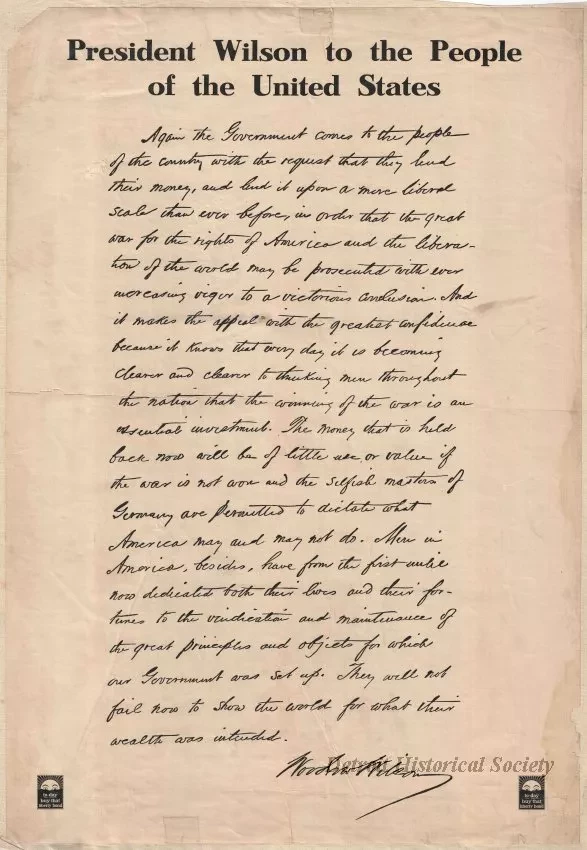 President Wilson to the People
of the United States
Again the Government comes to the people
of the country with the request that they lend
their money, and lend it upon a more liberal
scale than ever before, in order that the great
war for the rights of America and the libera-
tion of the world may be prosecuted with ever
increasing vigor to a victorious conclusion. And
it makes the appeal with the greatest confidence
because it knows that every day it is becoming
clearer and clearer to thinking men throughout
the nation that the winning of the war is an
essential investment. The money that is held
back now will be of little use or value if
the war is not won and the selfish masters of
Germany are permitted to dictate what
America may and may not do. Men in
America, besides, have from the first until
now dedicated both their lives and their for-
tunes to the vindication and maintenance of
the great principles and objects for which
our Government was set up. They will not
fail now to show the world for what their
wealth was intended.
Woodrow Wilson
Detroit Historical Society
to-day
buy that
liberty bond
to-day
buy that
liberty bond